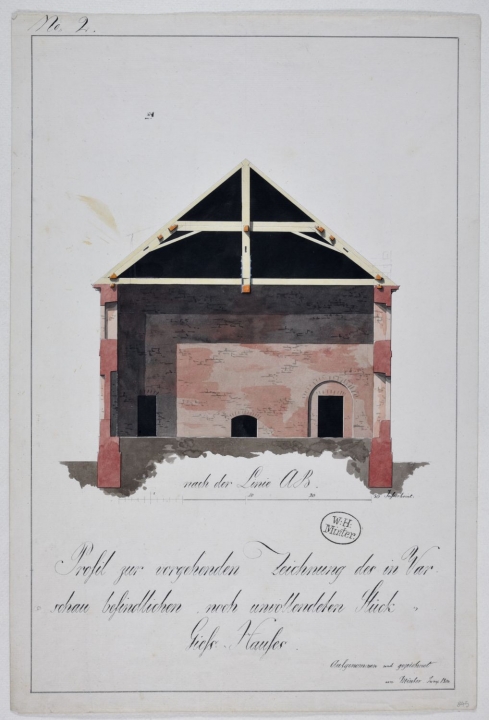 No. 2.
nach der Linie AB.
10 20
W.H.
Minter
Profil zur vorgehenden Zeichnung des in War-
schau befindlichen noch unvollendeten Stück
Giess Hauses
Aufgenommen und gezeichnet
von Minter